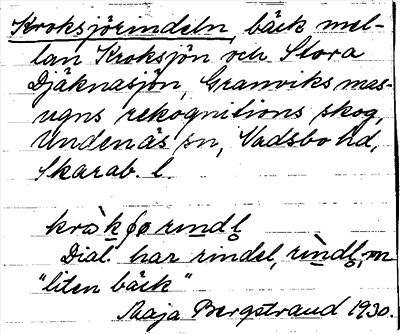 Kroksjörindeln, bäck mel-
lan Kroksjön och Stora
Djäknasjön, Granviks mas-
ugns rekognitions skog,
Undenäs sn, Vadsbo hd,
Skarab. l.
Dial. har rindel, rìndḷ, m
"liten bäck"
Maja Bergstrand 1930.